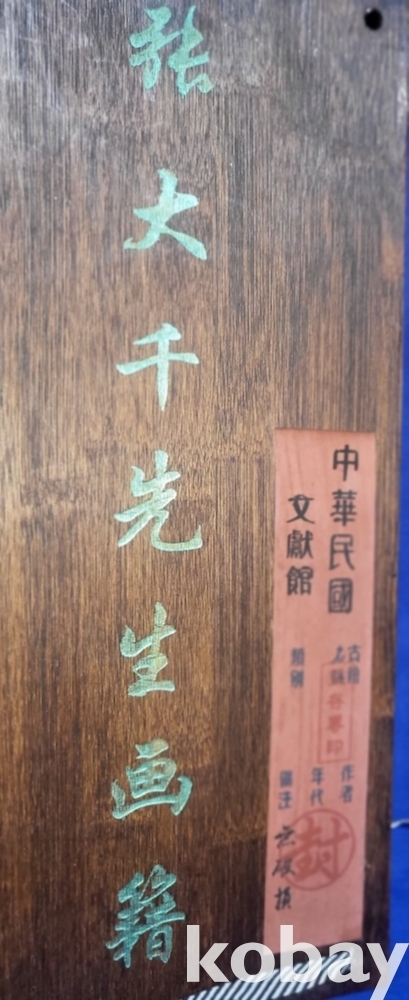 张大千先生画籍
中華民國
文獻館
古物
名稱
類別
作者
年代
備注
無破損
封
kobay